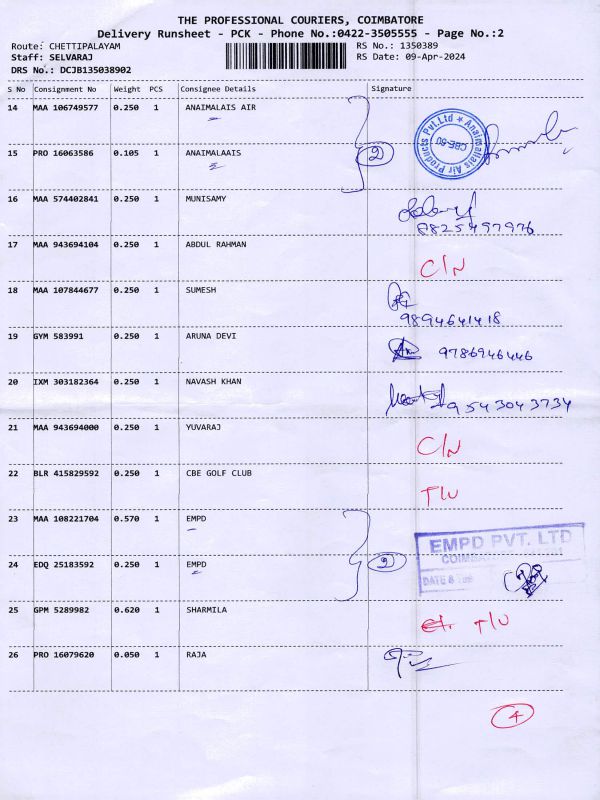 THE PROFESSIONAL COURIERS, COIMBATORE
Delivery Runsheet - PCK - Phone No.:0422-3505555 - Page No.:2
Route: CHETTIPALAYAM RS No.: 1350389
Staff: SELVARAJ RS Date: 09-Apr-2024
DRS No.: DCJB135038902
S No Consignment No Weight PCS Consignee Details Signature
14 MAA 106749577 0.250 1 ANAIMALAIS AIR
Anaimallais Air Products Pvt.Ltd
CBE-50
15 PRO 16063586 0.105 1 ANAIMALAAIS 2
16 MAA 574402841 0.250 1 MUNISAMY
8825497976
17 MAA 943694104 0.250 1 ABDUL RAHMAN C/N
18 MAA 107844677 0.250 1 SUMESH
9894641418
19 GYM 583991 0.250 1 ARUNA DEVI 9786946446
20 IXM 303182364 0.250 1 NAVASH KHAN 9543043734
21 MAA 943694000 0.250 1 YUVARAJ C/N
22 BLR 415829592 0.250 1 CBE GOLF CLUB T/U
23 MAA 108221704 0.570 1 EMPD
EMPD PVT. LTD
24 EDQ 25183592 0.250 1 EMPD 2
DATE &
25 GPM 5289982 0.620 1 SHARMILA T/U
26 PRO 16079620 0.050 1 RAJA
4